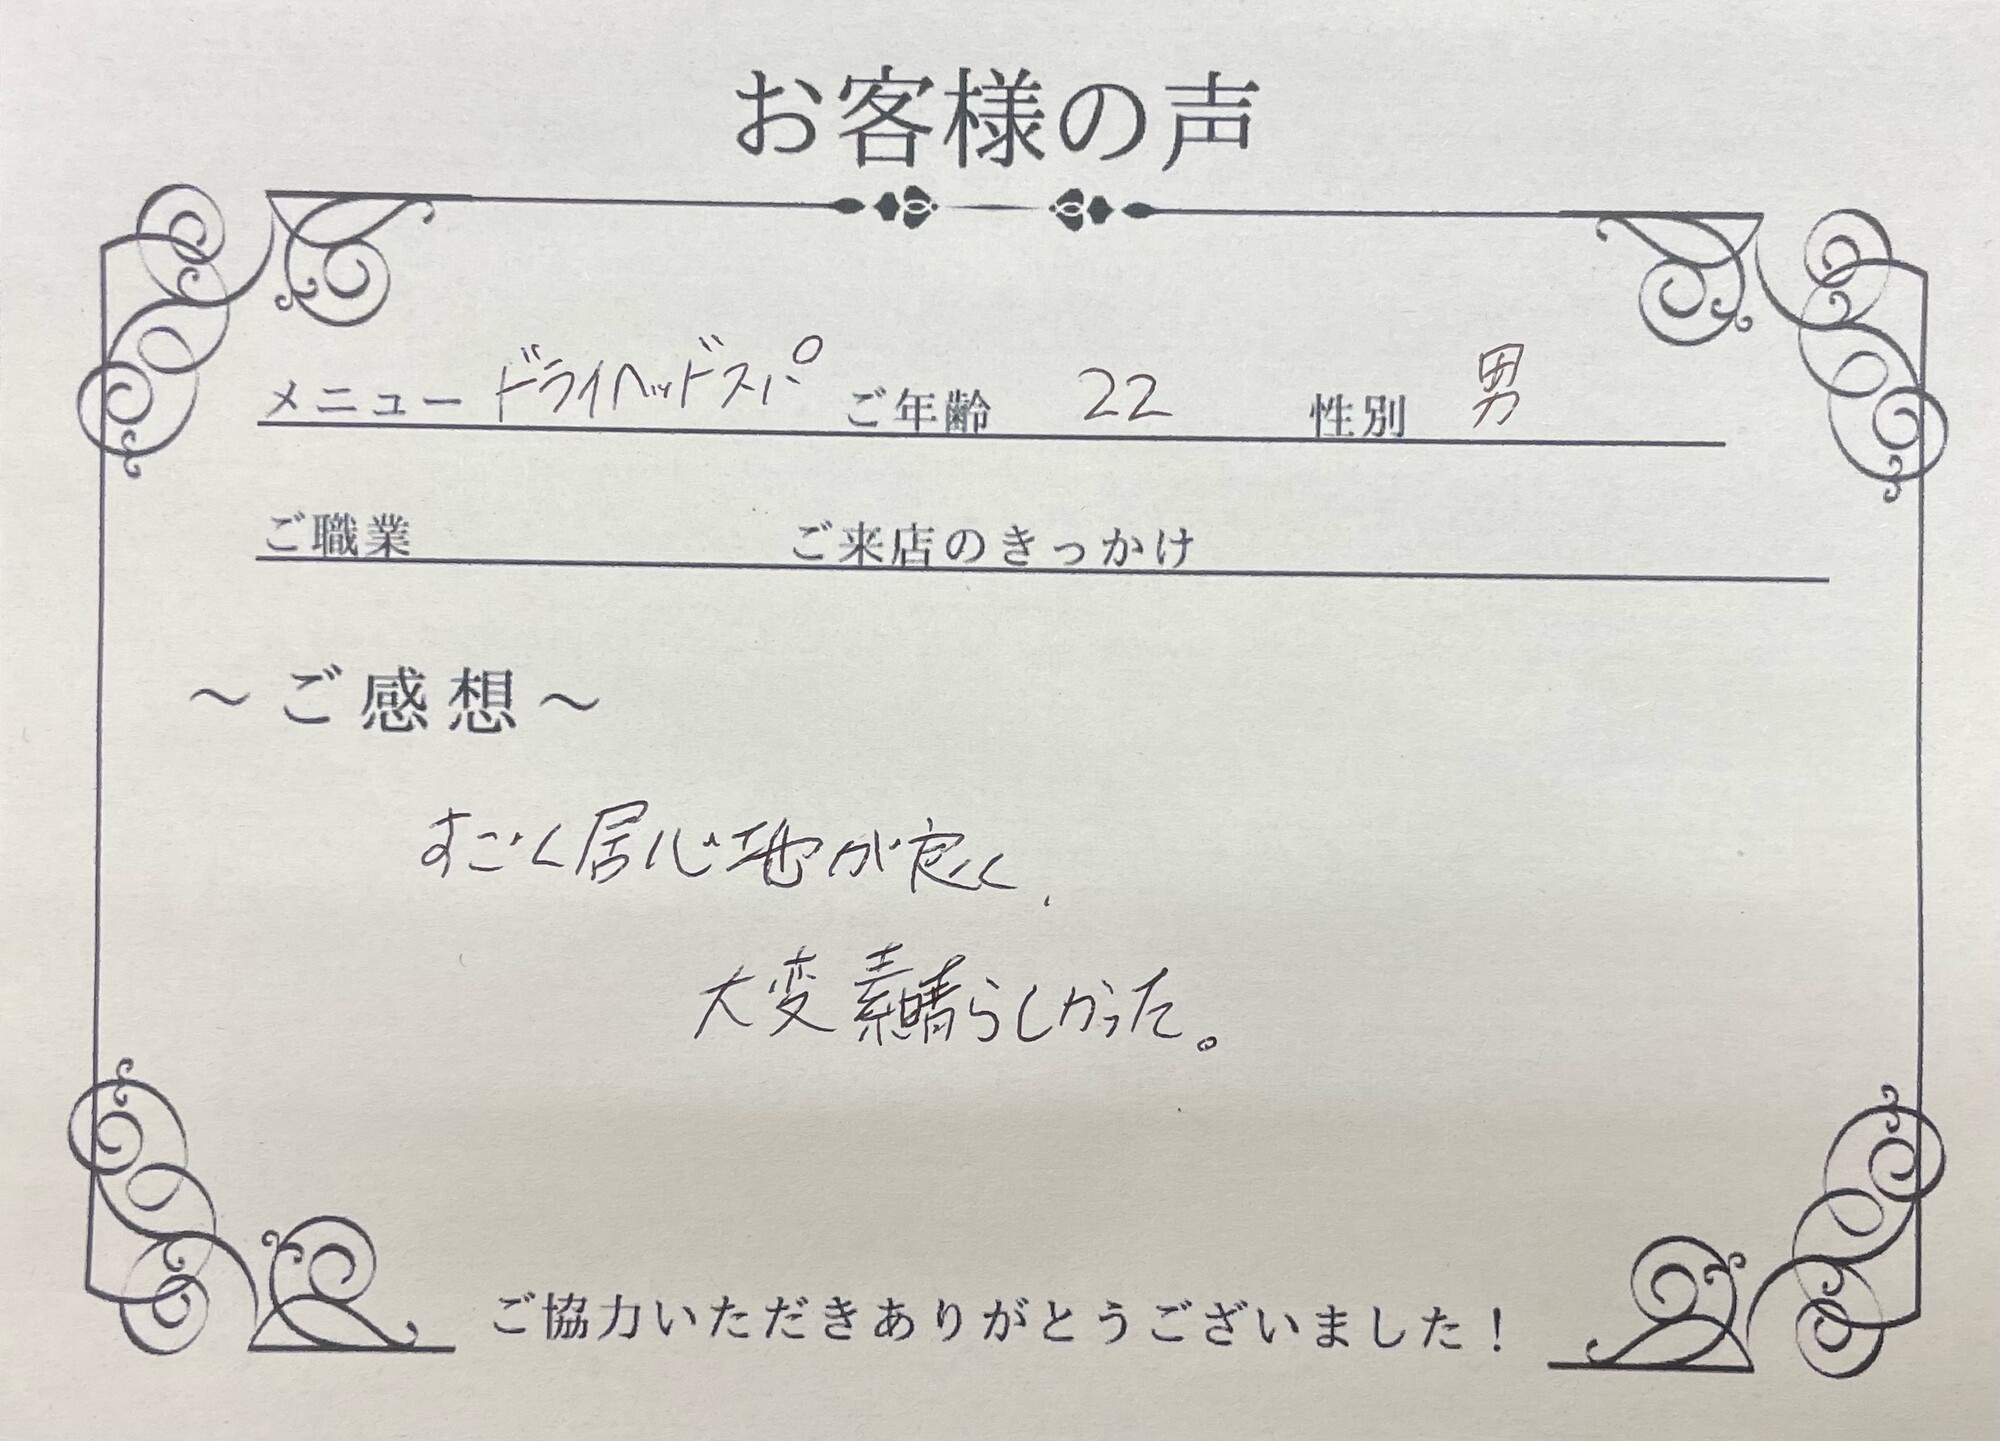 お客様の声
メニュー ドライヘッドスパ ご年齢 22 性別 男
ご職業 ご来店のきっかけ
～ご感想～
すごく居心地が良く、
大変素晴らしかった。
ご協力いただきありがとうございました！